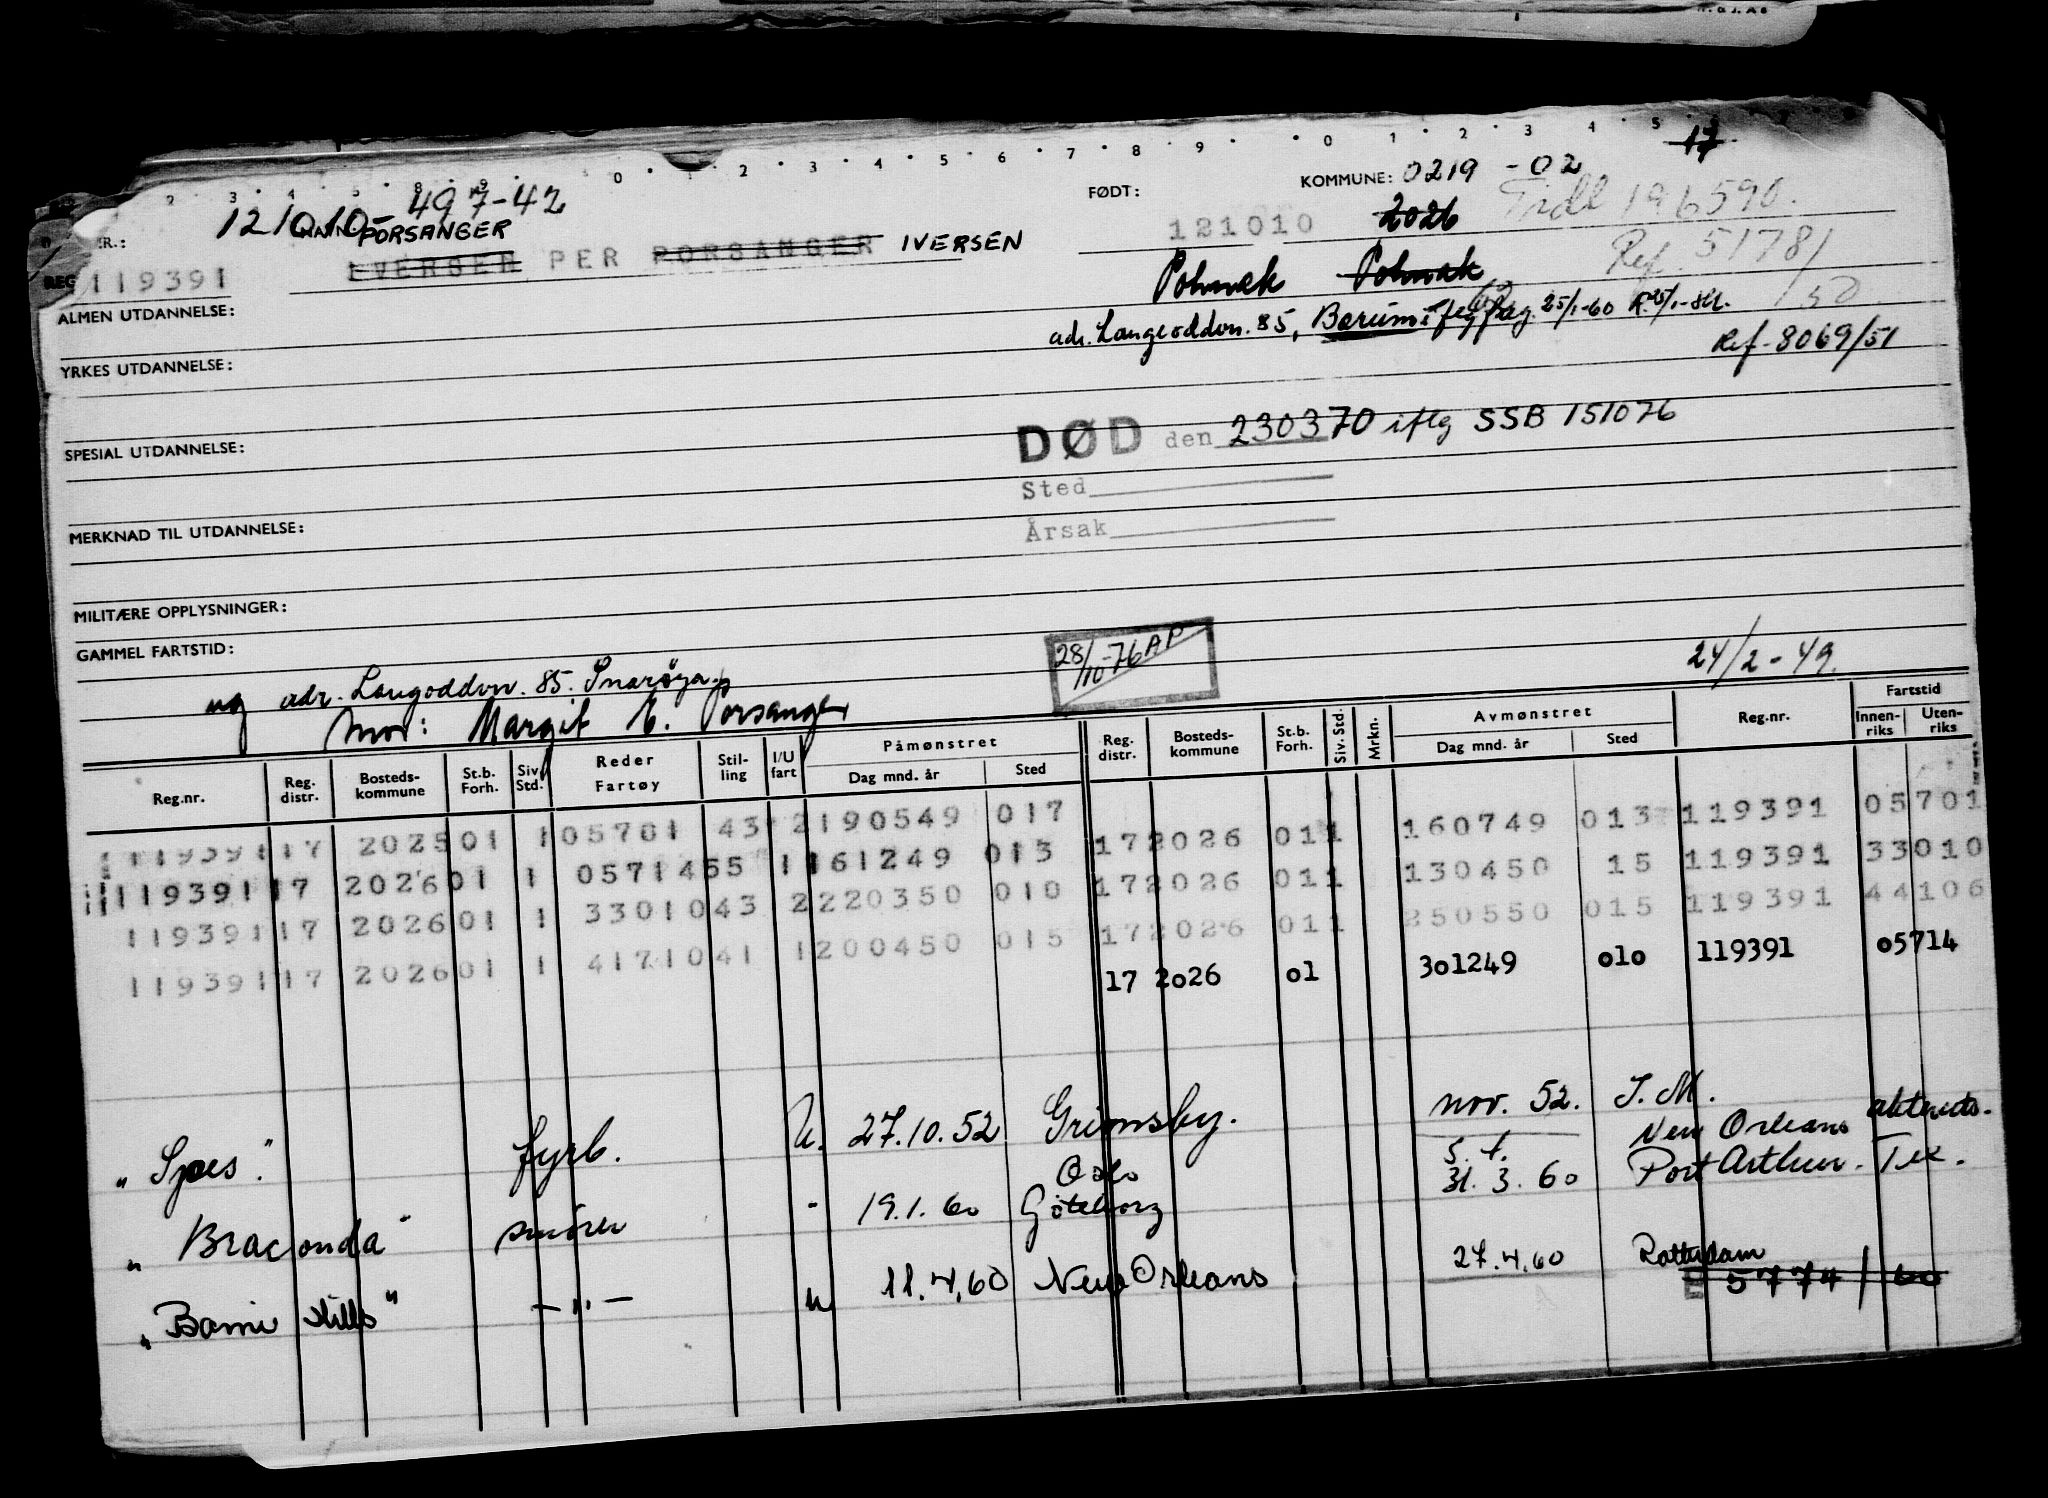 0 1 2 3 4 5 6 7 8 9 0 1 2 3 4 5
17
121010-49742
KOMMUNE: 0219 -02
FØDT:
121010 2026 Tidl 196590.
PORSANGER
IVERSEN PER PORSANGER IVERSEN
REG 119391
Polmak Polmak Ref. 51781/50
ALMEN UTDANNELSE:
adr. Langoddvn. 85, Bærum 25/1-60
YRKES UTDANNELSE:
Ref-8069/51
SPESIAL UTDANNELSE:
DØD den 230370 iflg SSB 151076
Sted
MERKNAD TIL UTDANNELSE:
Årsak
MILITÆRE OPPLYSNINGER:
GAMMEL FARTSTID:
28/10-76 AP
24/2-49.
ug adr. Langoddvn. 85. Snarøya
Mor: Margit E. Porsanger
Reg.nr. Reg. distr. Bosteds-kommune St.b. Forh. Siv. Std. Reder Fartøy Stil-ling I/U fart Påmønstret Dag mnd. år Sted Reg. distr. Bosteds-kommune St.b. Forh. Siv. Std. Mrkn. Avmønstret Dag mnd. år Sted Reg.nr. Fartstid Innen-riks Uten-riks
119391 17 2025 01 1 05701 43 2 190549 017 17 2026 01 1 160749 013 119391 05701
119391 17 2026 01 1 05714 55 1 161249 013 17 2026 01 1 130450 15 119391 33010
119391 17 2026 01 1 33010 43 2 220350 010 17 2026 01 1 250550 015 119391 44106
119391 17 2026 01 1 41710 41 1 200450 015 17 2026 01 301249 010 119391 05714
"Spes". fyrb. U. 27.10.52 Grimsby. nov. 52. T.M.
"Braconda" smører - 19.1.60 Oslo Göteborg s.t. 31.3.60 New Orleans Port Arthur. Tex.
"Bomi Hills" -"- u 11.4.60 New Orleans 27.4.60 Rotterdam
E 5774/60